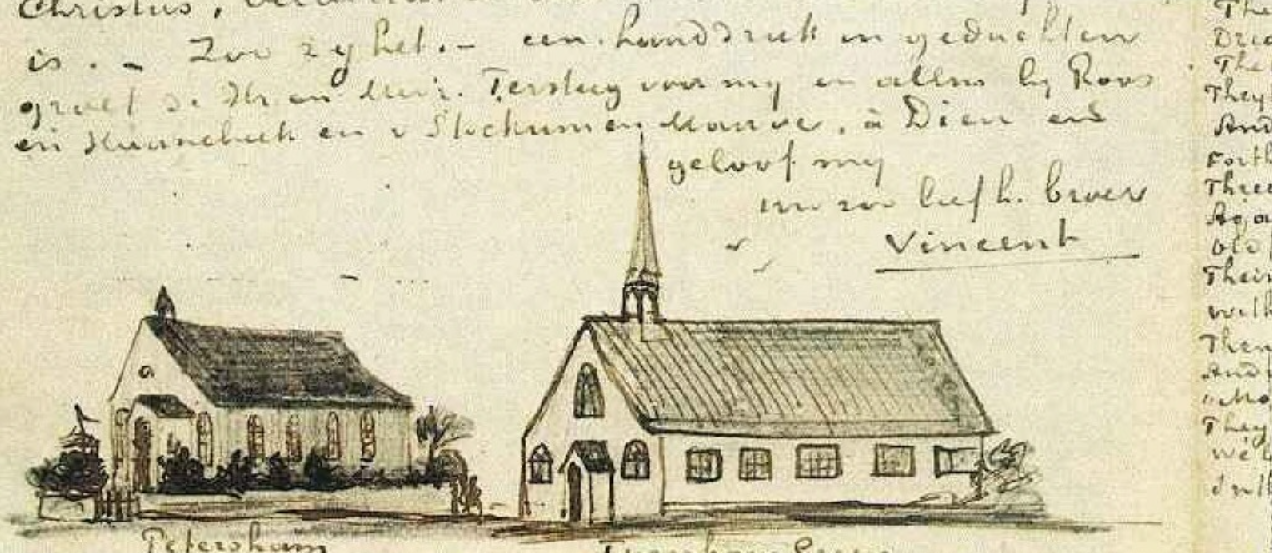 Christus,
is. – Zoo zy het. – een handdruk in gedachten
groet de Hr en Mevr. Tersteeg voor my en allen by Roos
en Haanebeek en v Stockum en Mauve, à Dieu en
geloof my
uw zoo liefh. broer
Vincent
Petersham
Turnham Green
The
The
They
And
Forth
Three
Aga
old
Their
with
Then
And
They